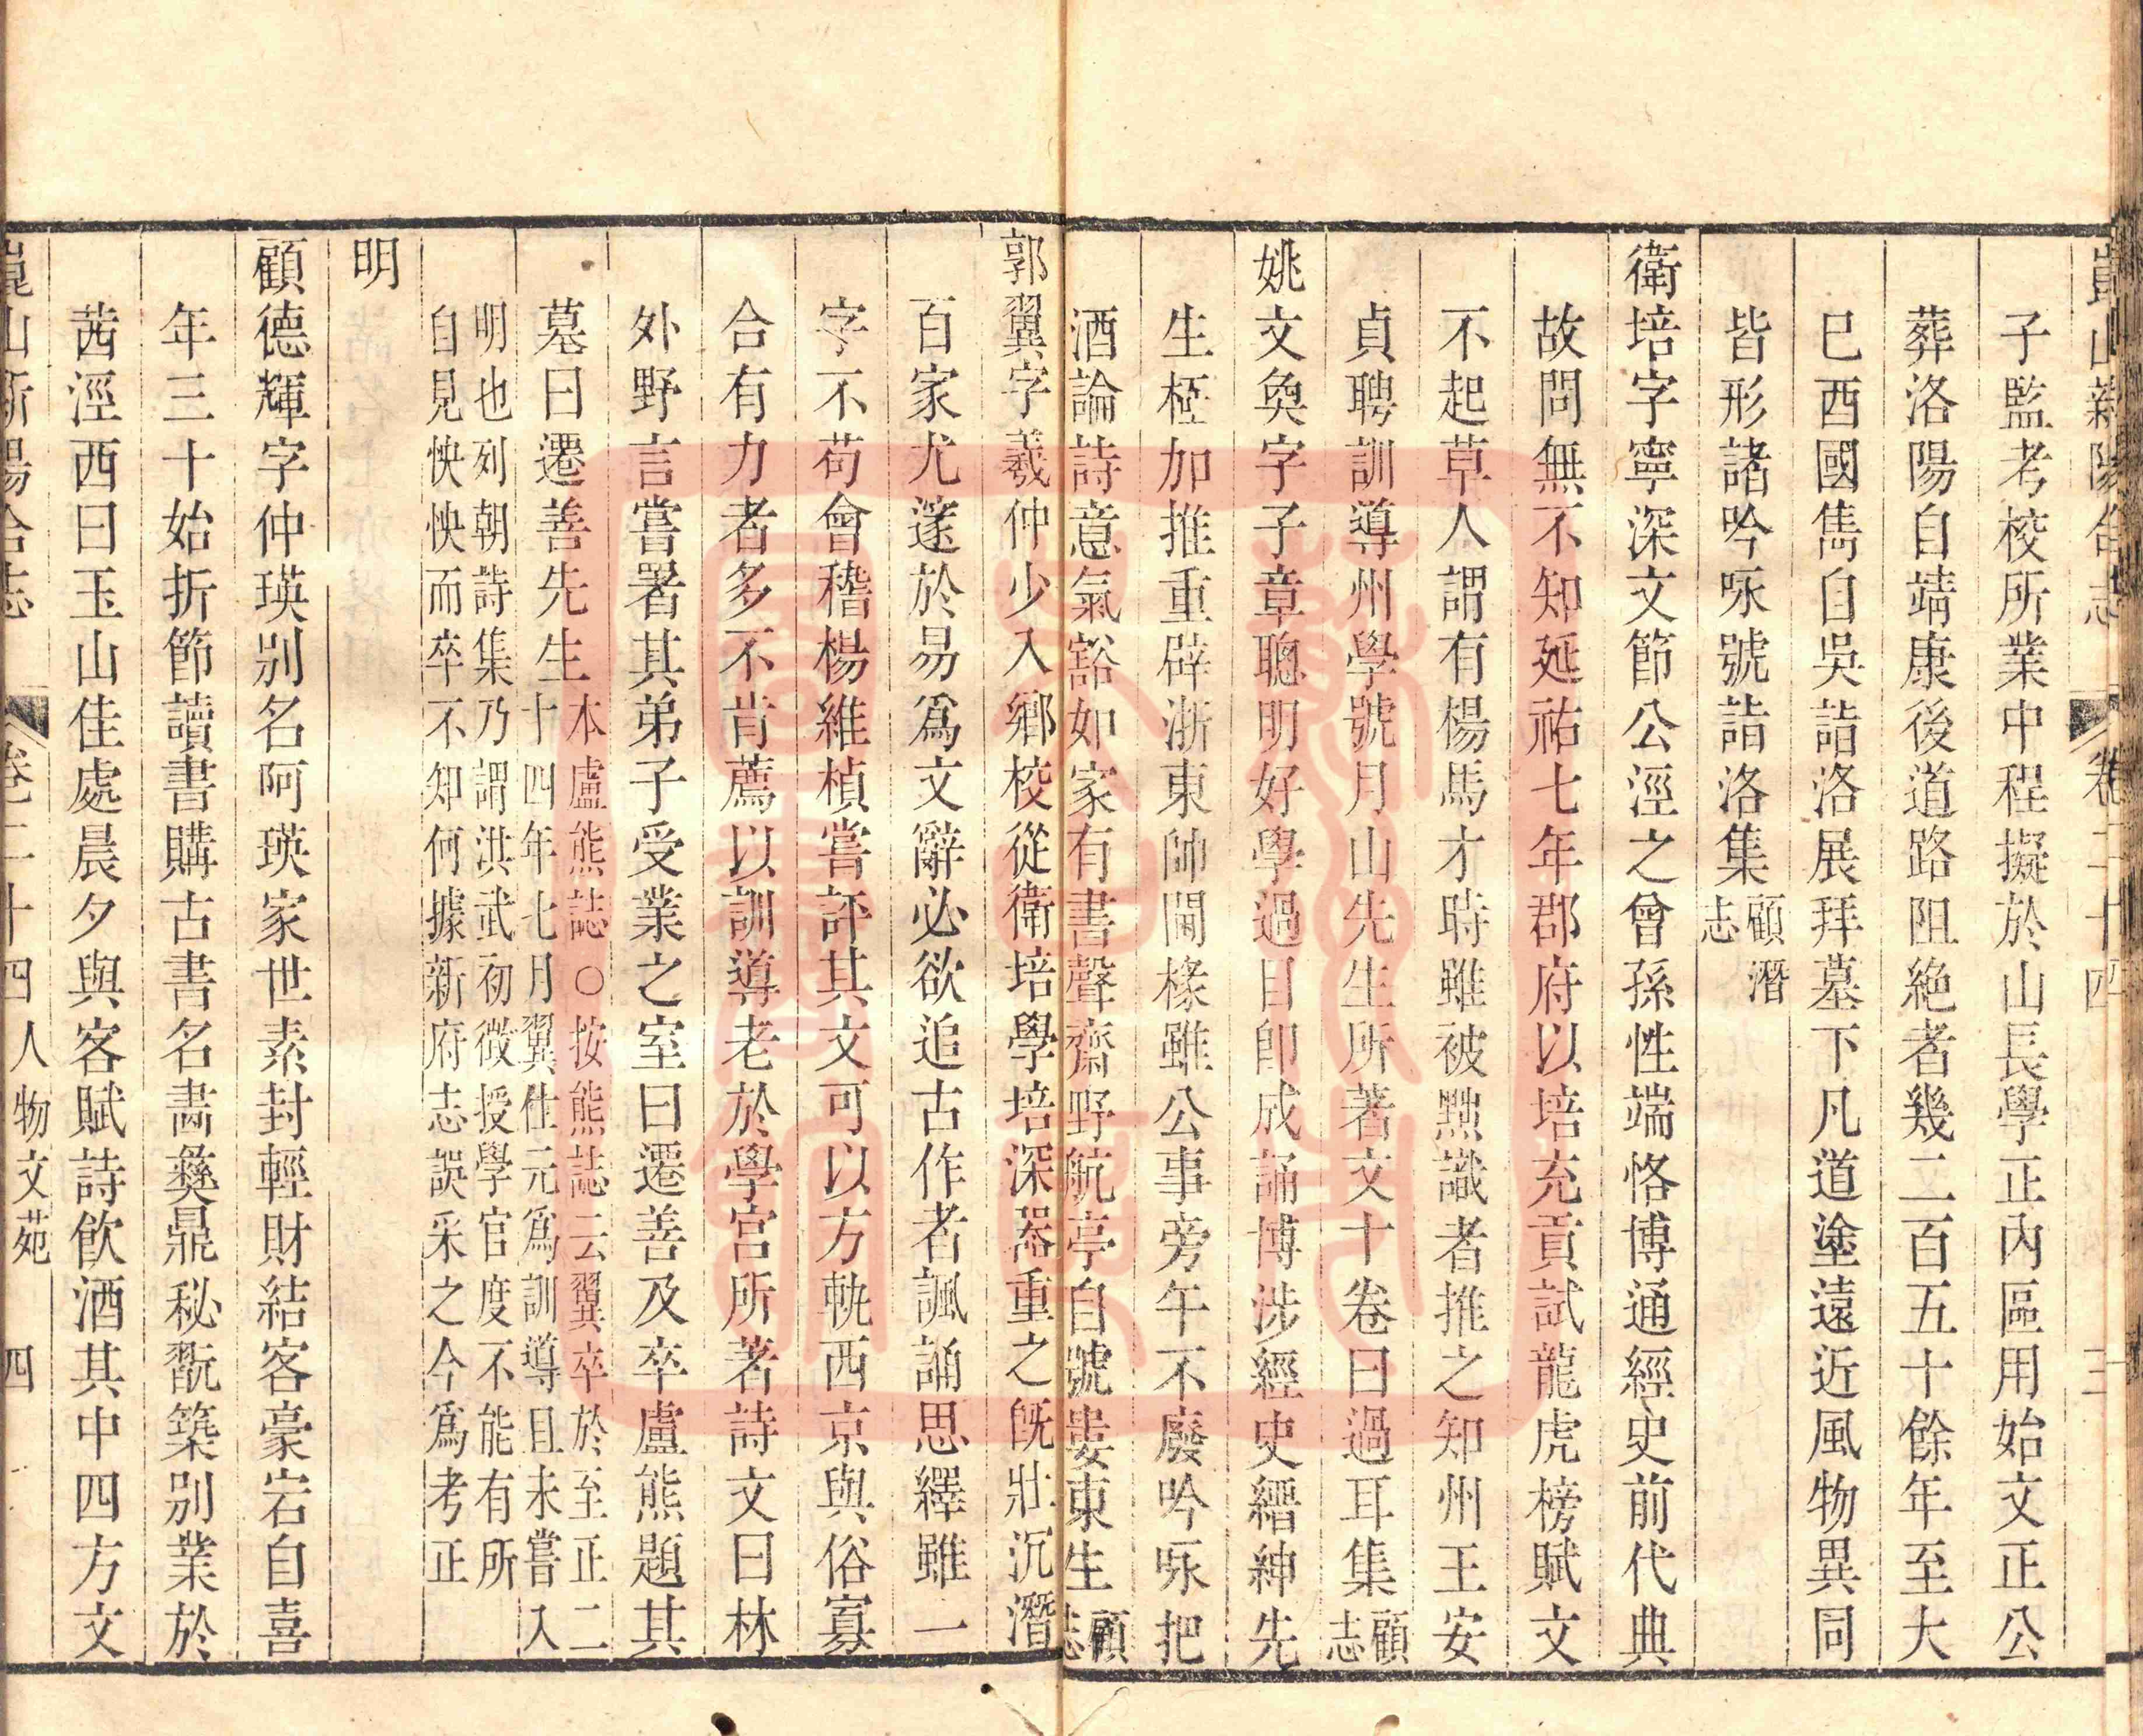 崑山新陽合志 卷二十四 三
子監考校所業中程擬於山長學正內區用始文正公
葬洛陽自靖康後道路阻絶者幾二百五十餘年至大
巳酉國雋自吳詣洛展拜墓下凡道塗遠近風物異同
皆形諸吟咏號詣洛集顧潛志
衛培字寧深文節公涇之曾孫性端恪博通經史前代典
故問無不知延祐七年郡府以培充貢試龍虎榜賦文
不起草人謂有楊馬才時雖被黜識者推之知州王安
貞聘訓導州學號月山先生所著文十卷曰過耳集顧志
姚文奐字子章聰明好學過目卽成誦博涉經史縉紳先
生極加推重辟浙東帥閫椽雖公事旁午不廢吟咏把
酒論詩意氣豁如家有書聲齋野航亭自號婁東生顧志
郭翼字羲仲少入鄉校從衛培學培深器重之旣壯沉潛
百家尤邃於易爲文辭必欲追古作者諷誦思繹雖一
字不苟會稽楊維楨嘗評其文可以方軌西京與俗寡
合有力者多不肯薦以訓導老於學宫所著詩文曰林
外野言嘗署其弟子受業之室曰遷善及卒盧熊題其
墓曰遷善先生本盧熊誌○按熊誌云翼卒於至正二
十四年七月翼仕元爲訓導且未嘗入
明也列朝詩集乃謂洪武初徵授學官度不能有所
自見怏怏而卒不知何據新府志誤采之今爲考正
明
顧德輝字仲瑛別名阿瑛家世素封輕財結客豪宕自喜
年三十始折節讀書購古書名畵彝鼎秘翫築別業於
茜涇西曰玉山佳處晨夕與客賦詩飮酒其中四方文
崑山新陽合志 卷二十四 人物 文苑 四